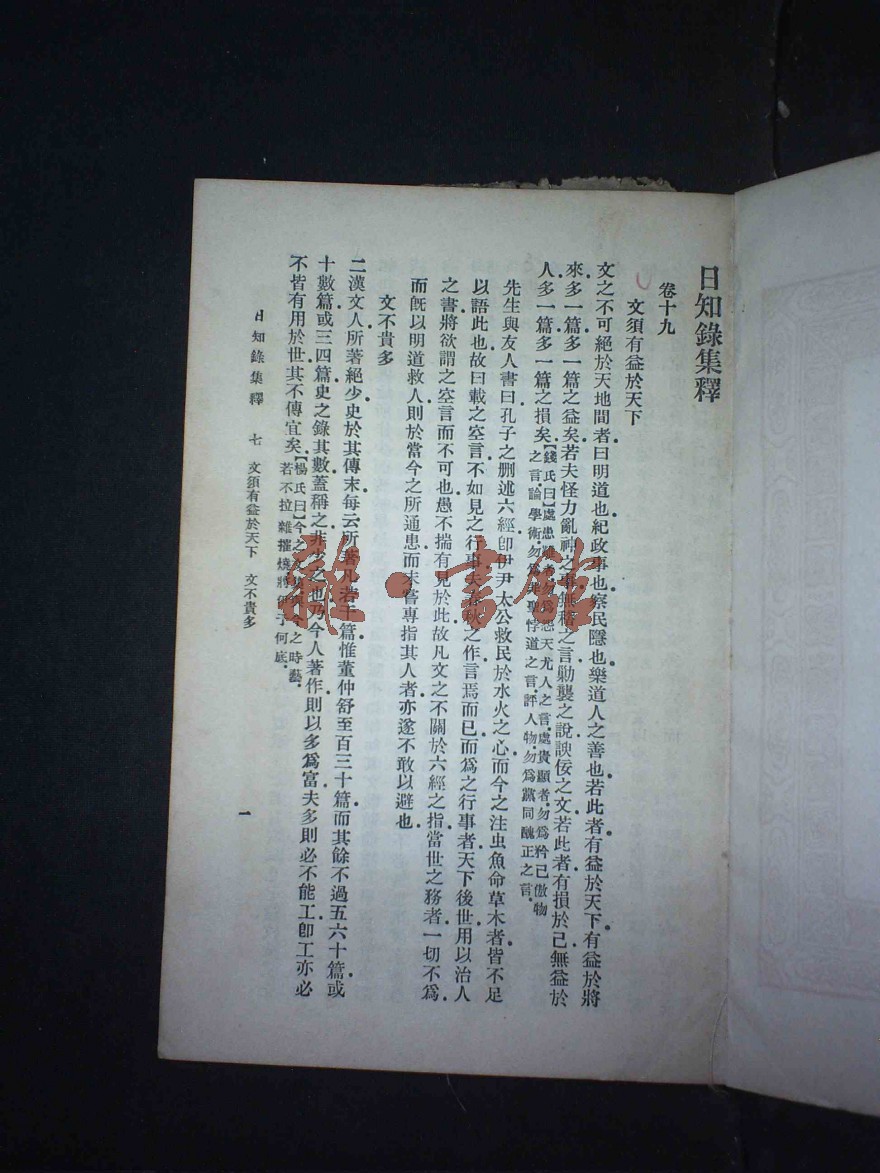 日知錄集釋
卷十九
文須有益於天下
文之不可絕於天地間者曰明道也紀政事也察民隱也樂道人之善也若此者有益於天下有益於將
來多一篇多一篇之益矣若夫怪力亂神之事無稽之言勦襲之說諛佞之文若此者有損於己無益於
人多一篇多一篇之損矣【錢氏曰】處患難者勿爲怨天尤人之言處貴顯者勿爲矜己傲物
之言論學術勿爲非聖悖道之言評人物勿爲黨同醜正之言
先生與友人書曰孔子之刪述六經卽伊尹太公救民於水火之心而今之注虫魚命草木者皆不足
以語此也故曰載之空言不如見之行事夫春秋之作言焉而已而爲之行事者天下後世用以治人
之書將欲謂之空言而不可也愚不揣有見於此故凡文之不關於六經之指當世之務者一切不爲
而旣以明道救人則於當今之所通患而未嘗專指其人者亦遂不敢以避也
文不貴多
二漢文人所著絕少史於其傳末每云所著凡若干篇惟董仲舒至百三十篇而其餘不過五六十篇或
十數篇或三四篇史之錄其數蓋稱之非少之也乃今人著作則以多爲富夫多則必不能工卽工亦必
不皆有用於世其不傳宜矣【楊氏曰】今之文集與今之時藝
若不拉雜摧燒將伊于何底
日知錄集釋 七 文須有益於天下 文不貴多
一
雜·書館